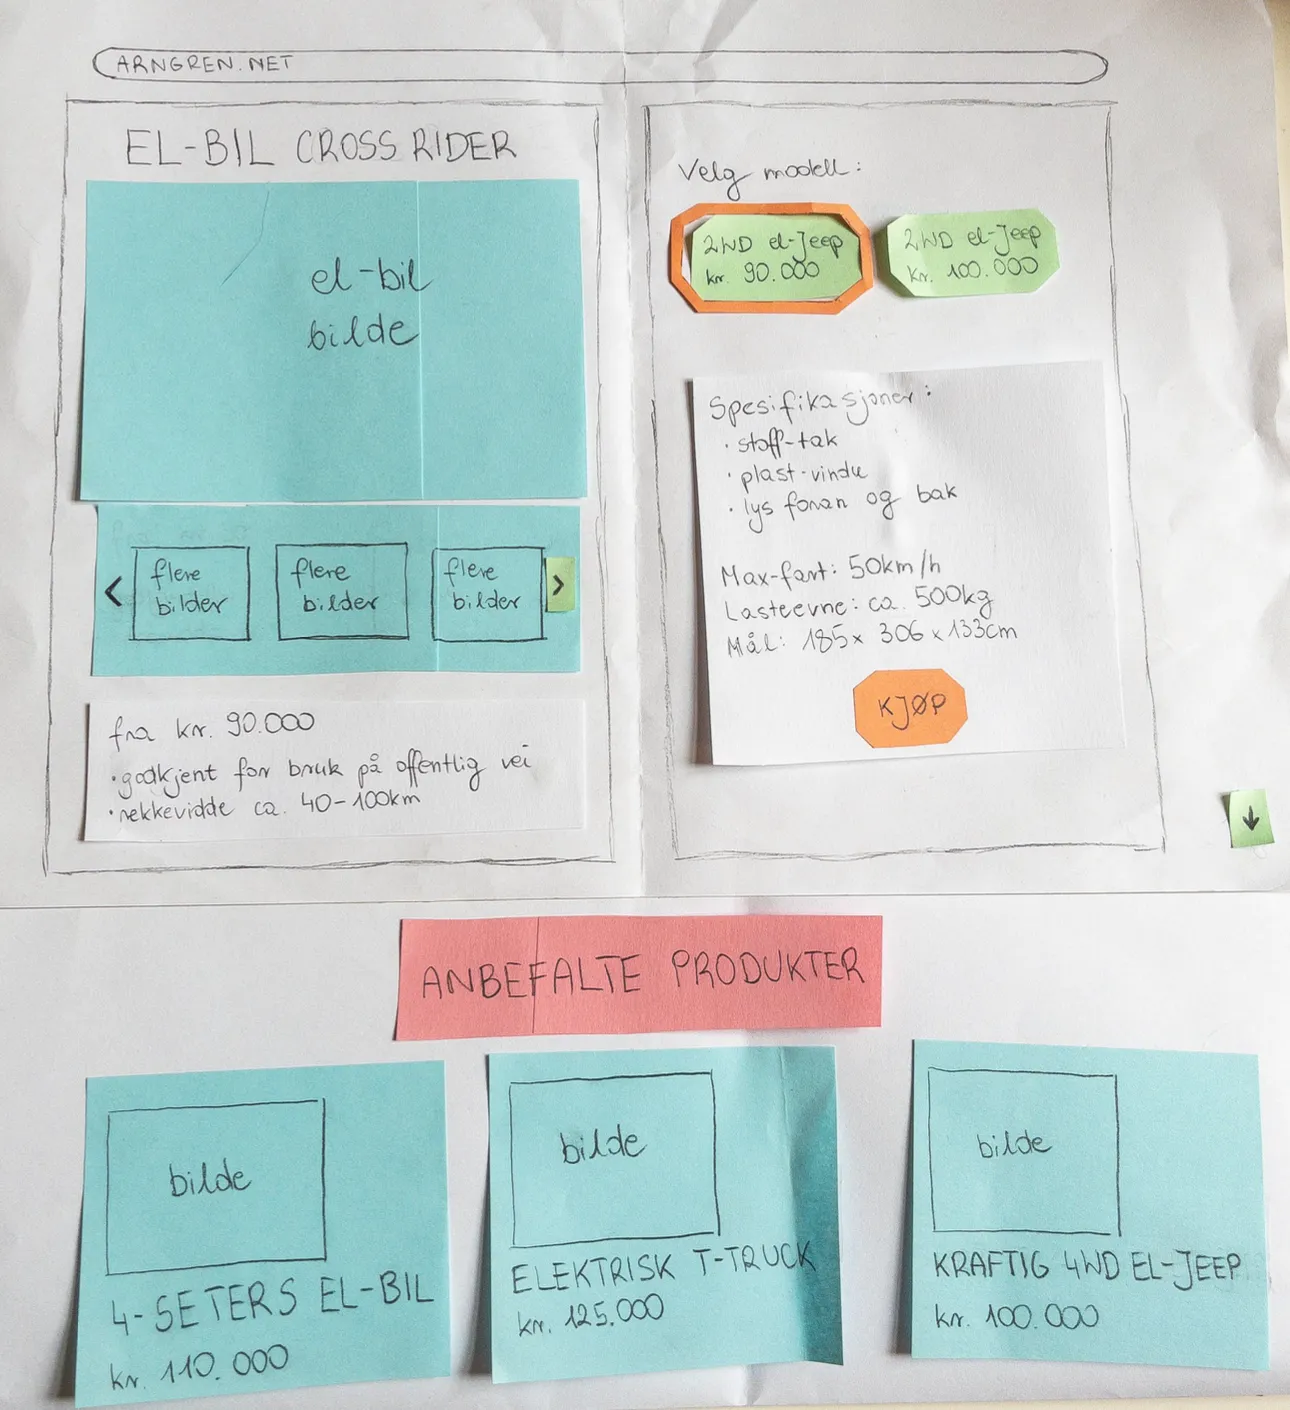 ARNGREN.NET
EL-BIL CROSS RIDER
el-bil
bilde
<
flere
bilder
flere
bilder
flere
bilder
>
fra kr. 90.000
· godkjent for bruk på offentlig vei
· rekkevidde ca. 40-100km
Velg modell:
2WD el-Jeep
kr. 90.000
2WD el-Jeep
kr. 100.000
Spesifikasjoner:
· stoff-tak
· plast-vindu
· lys foran og bak
Max-fart: 50km/h
Lasteevne: ca. 500kg
Mål: 185 x 306 x 133cm
KJØP
↓
ANBEFALTE PRODUKTER
bilde
4-SETERS EL-BIL
kr. 110.000
bilde
ELEKTRISK T-TRUCK
kr. 125.000
bilde
KRAFTIG 4WD EL-JEEP
kr. 100.000